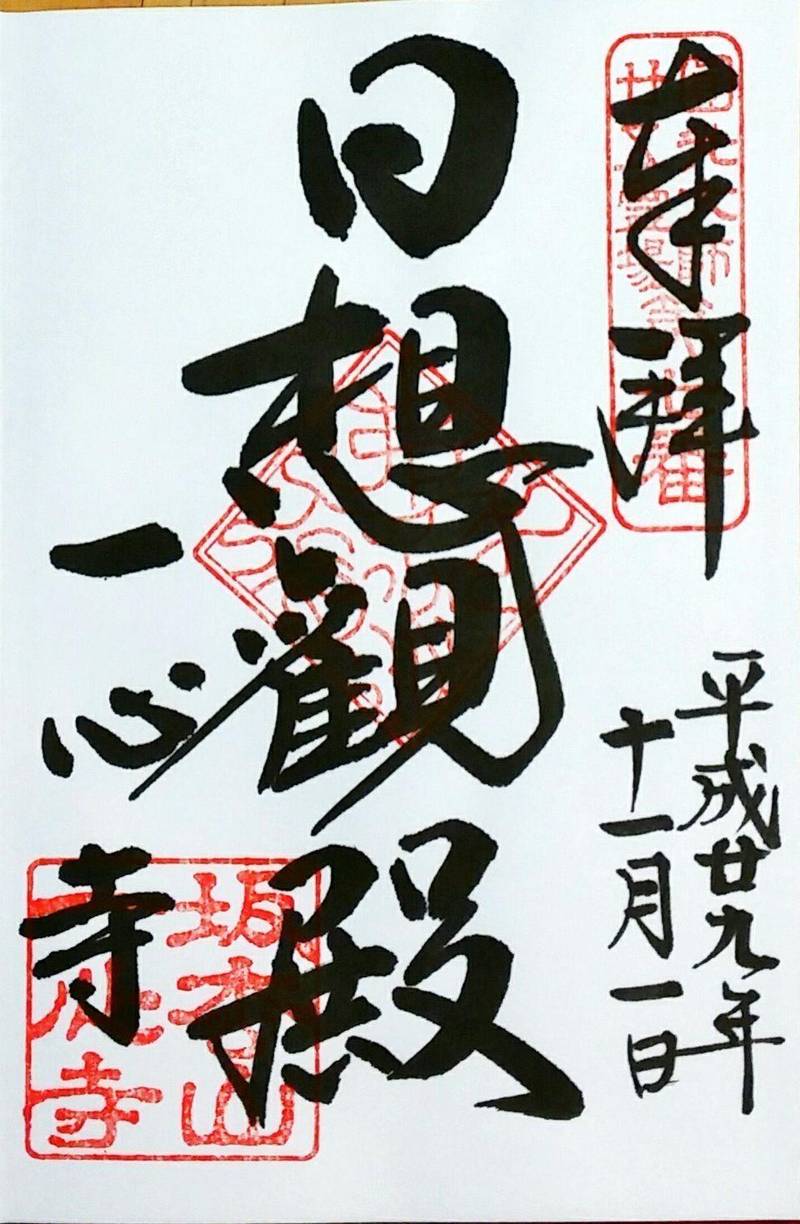 奉拝
平成廿九年
十一月一日
日想観殿
一心寺
坂松山
一心寺